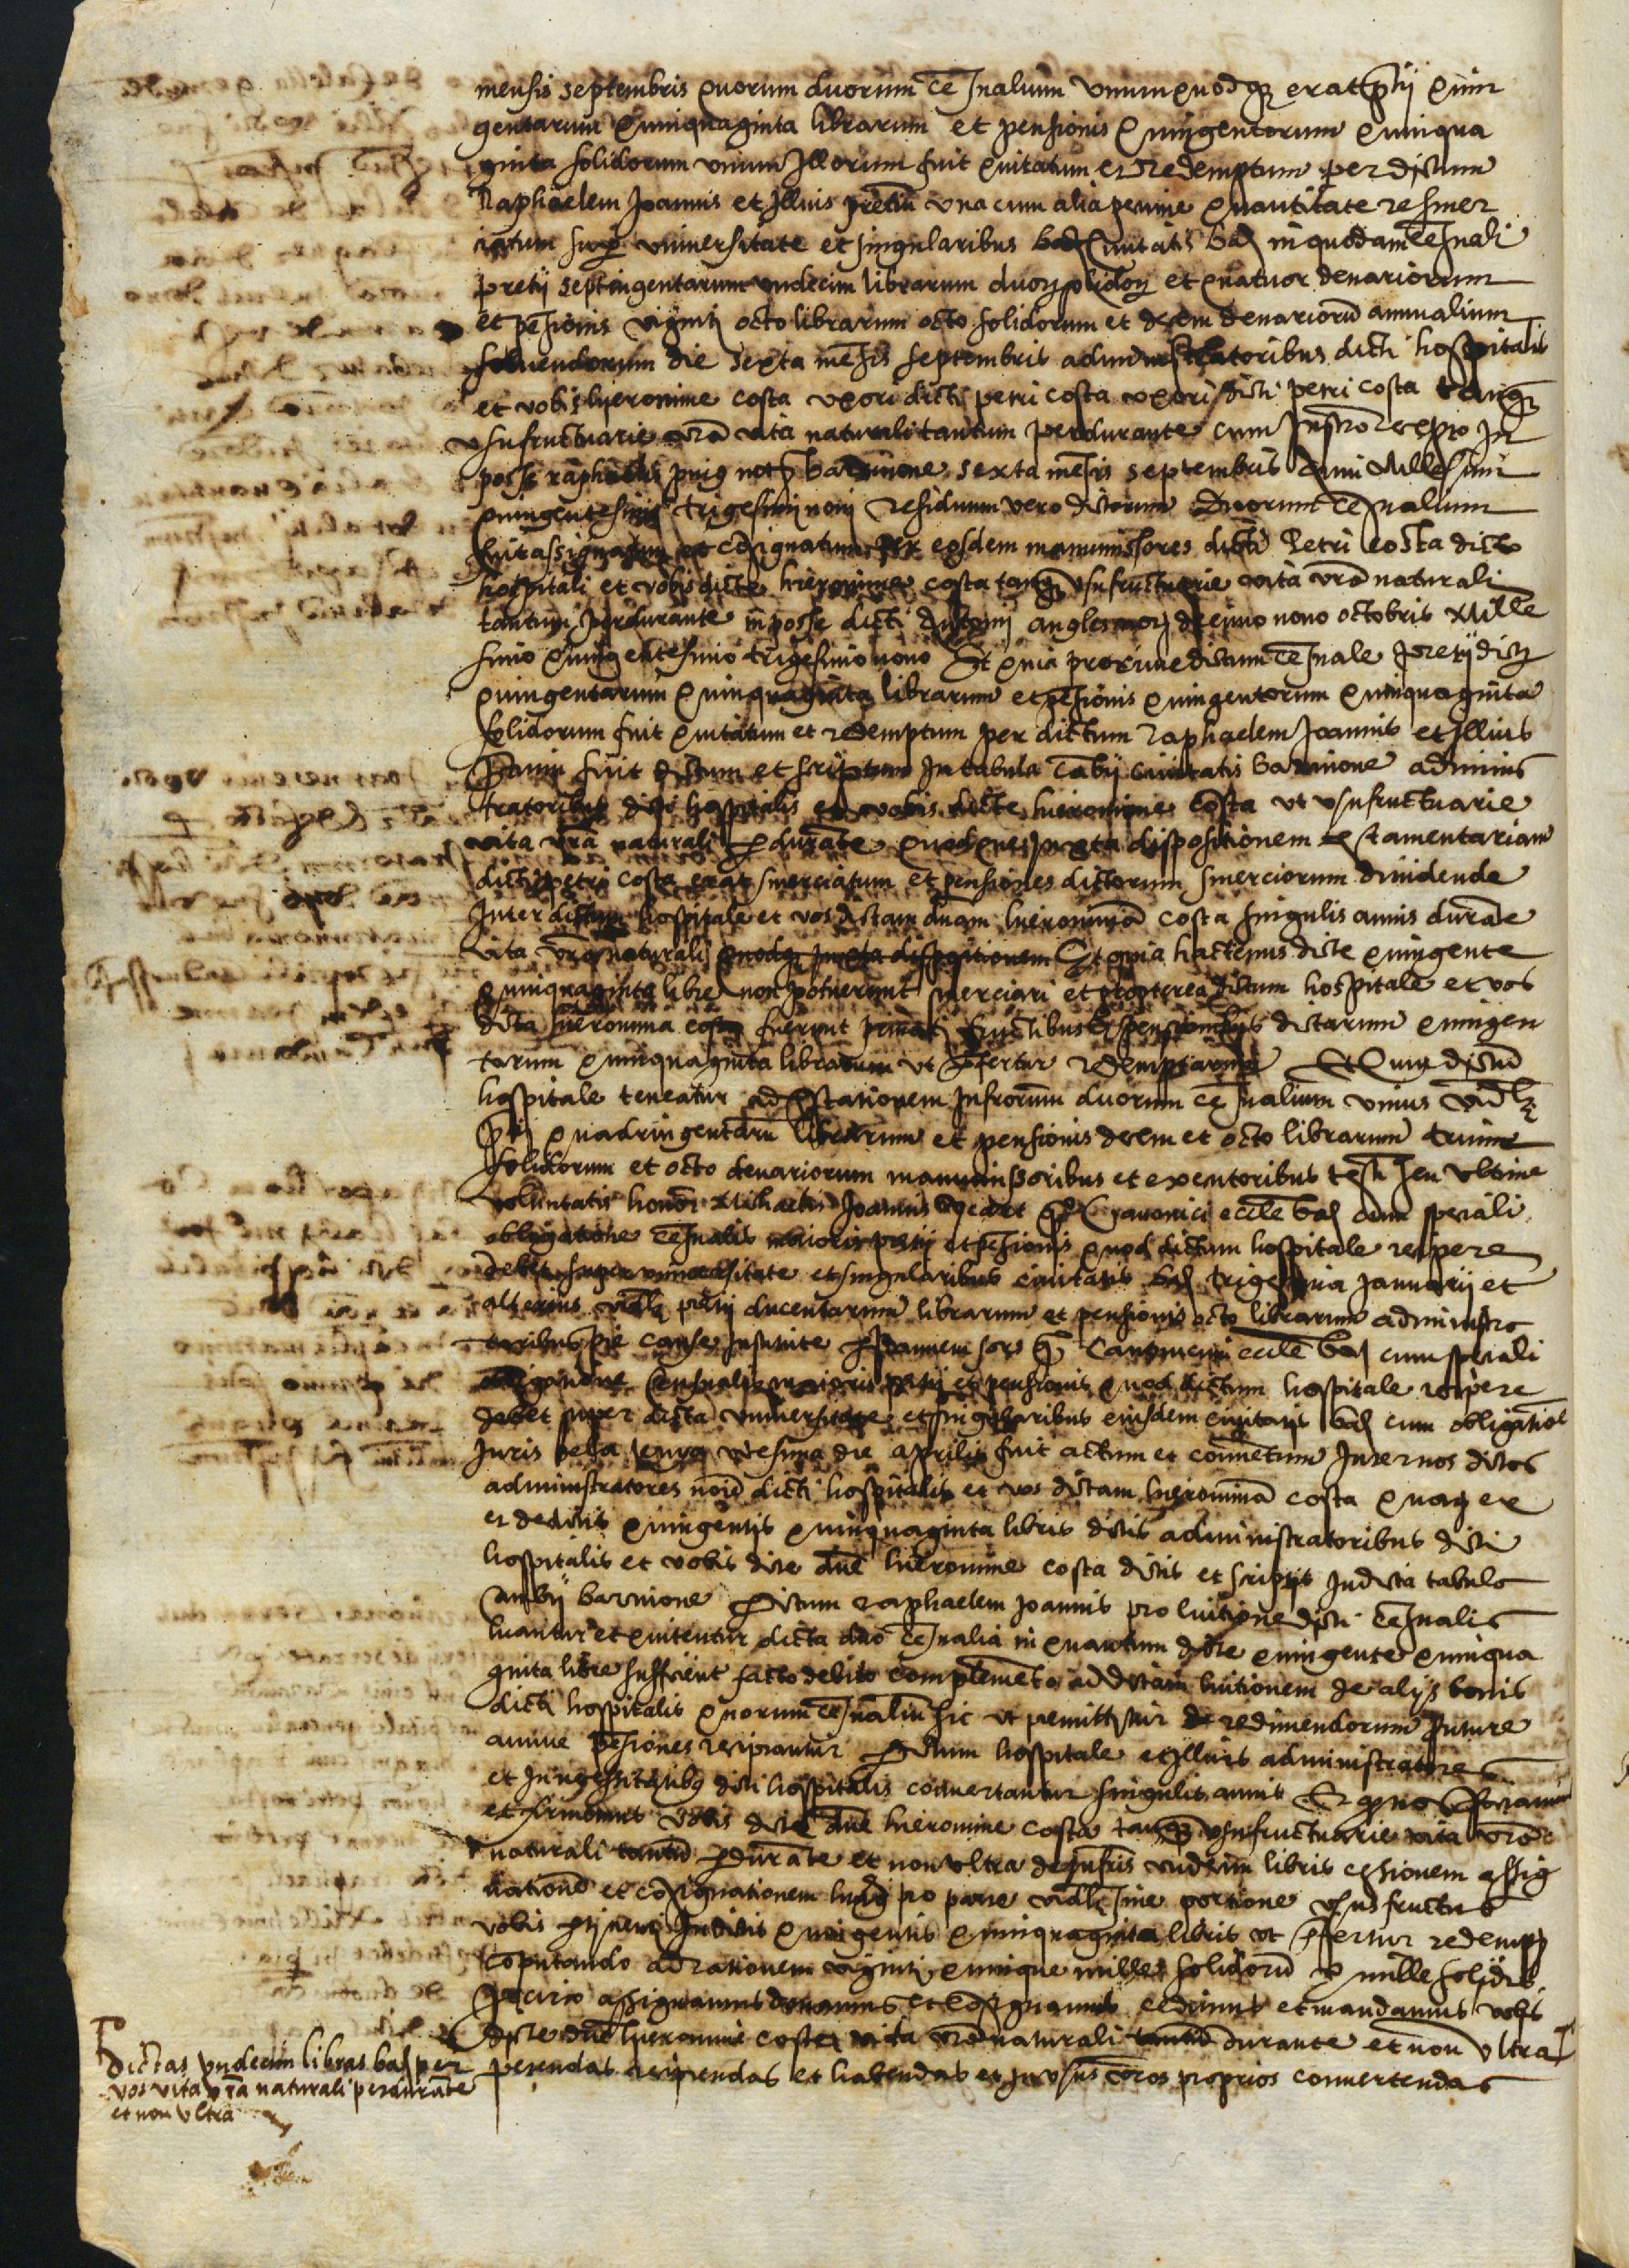 mensis septembris quorum duorum cēsualium unumquodqȝ erat p̄tij quin
gentarum quinquaginta librarum et pensionis quingentorum quinqua
ginta solidorum unum Illorum fuit quitatum et redemptum per dictum
Raphaelem Joannis et Illius pretiū una cum alia pecunie quantitate resmer
ciatum sup̄ universitate et singularibus civitatis baȝ in quodam cēsuali
pretij septingentarum undecim librarum duoȝ solidoȝ et quatuor denariorum
et pēsionis viginti octo librarum octo solidorum et decem denariorū annualium
soluendorum die sexta mēsis septembris administratoribus dicti hospitalis
et vobis hieronime costa uxori dicti petri costa uxori dicti petri costa tanqȝ
usufructuarie vr̄a vita naturali tantum perdurante cum Instrō recepto In
posse raphaelis puig notȝ barcinone sexta mēsis septembris anni Millesimi
quingentesimi trigesimi noni residuum vero dictorum duorum cēsualium
fuit assignatum et cōsignatum per eosdem manumissores dicti Petri costa dicto
hospitali et vobis dicte hieronime costa tanqȝ usufructuarie vita vr̄a naturali
tantum perdurante in posse dicti Antonij angles notȝ decimo nono octobris Mille
simo quingentesimo trigesimo nono Et quia proxime dictum cēsuale pretij dictȝ
quingentarum quinquaginta librarum et pēsionis quingentorum quinquaginta
solidorum fuit quitatum et redemptum per dictum Raphaelem Joannis et Illius
p̄cium fuit dictum et scriptum In tabula cābij civitatis barcinone adminis
tratoribus dicti hospitalis et vobis dicte hieronime costa ut usufructuarie
vita vr̄a naturali p̱durāte quodque Juxta dispositionem testamentariam
dicti petri costa erat smerciatum et pensiones dictorum smerciorum dividende
Inter dictum hospitale et vos dictam dnām hieronimā costa singulis annis durāte
vita vr̄a naturali quodqȝ Juxta dispositionem Et quia hactenus dicte quingente
quinquaginta libre non potuerunt smerciari et propterea dictum hospitale et vos
dicta hieronima costa fuerunt privati fructibus et pensionibus dictarum quingen
tarum quinquaginta librarum ut p̄fertur redemptarum Et Cum dictū
hospitale teneatur ad p̄stationem Infrorum duorum cēsualium unius vidlȝ
p̄tij quadringentarū librarum et pensionis decem et octo librarum trium
solidorum et octo denariorum manumissoribus et exequtoribus testi seu ultime
voluntatis honoȝ Michaelis Joannis quȝ Canonici ecclē baȝ cum speciali
obligatione cēsualis maioris pretij et pēsionis quod dictum hospitale recipere
debet super universitate et singularibus civitatis baȝ trigesima Januarij et
alterius vidlȝ pretij ducentarum librarum et pensionis octo librarum administra
toribus pie cause Institute p̱ Joannem sors quȝ Canonicum ecclē baȝ cum speciali
obligatione censualis maioris pretij et pensionis quod dictum hospitale recipere
debet super dicta universitate et singularibus eiusdem civitatis baȝ cum obligatiōe
Juris die aprilis fuit actum et cōventum Inter nos dictos
administratores noīe dicti hospitalis et vos dictam hieronimā costa quaqȝ ex
et de dictis quingentis quinquaginta libris dictis administratoribus dicti
hospitalis et vobis dicte dn̄e hieronime costa dictis et scriptis In dicta tabula
cambij barcinone p̱ dictum raphaelem Joannis pro luitione dicti cēsualis
luantur et quitentur dicta duo cēsualia in quantum dicte quingente quinqua
ginta libre sufficiunt facto debito complemēto ad dictam luitionem de alijs bonis
dicti hospitalis quorum cēsualiū sic ut premittitur redimendorum future
annue pēsiones recipiantur p̱ dictum hospitale et Illius administratores
et In necessitatibȝ dicti hospitalis cōvertantur singulis annis Et quod faciamus
et firmemus vobis dicte dn̄e hieronime costa tanqȝ usufructuarie vita vr̄a
naturali tantū p̱durāte et non ultra de Infris undecim libris cessionem assig
nationē et cōsignationem pro parte vidlȝ sive portione ususfructus
vobis p̱tinenȝ In dictis quingentis quinquaginta libris ut p̄fertur redemptȝ
cōputando ad rationem viginti quinque mille solidorū p̱ mille solidis
Idcirco assignamus donamus et cōsignamus cedimus et mandamus vobis
dicte dn̄e hieronime costa vita vr̄a naturali tantū durante et non ultra
petendas recipiendas et habendas et In usus vr̄os proprios convertendas
dictas undecim libras baȝ per
vos vita vr̄a naturali perdurāte
et non ultra